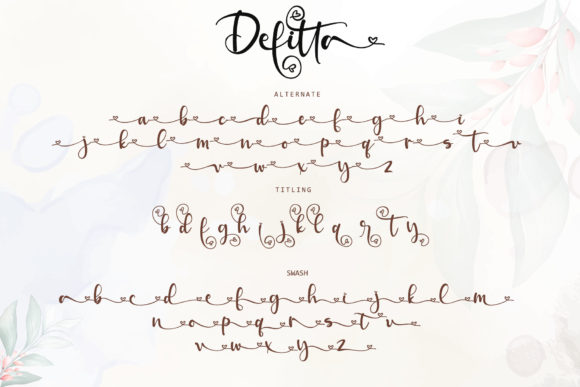 Delitta
ALTERNATE
a b c d e f g h i
j k l m n o p q r s t v
v w x y z
TITLING
b d f g h i j k l q r t y
SWASH
a b c d e f g h i j k l m
n o p q r s t u
v w x y z